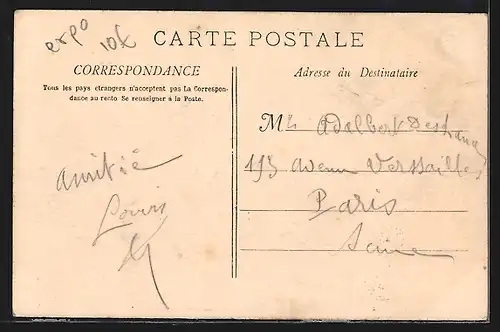 expo
10€
CARTE POSTALE
CORRESPONDANCE
Tous les pays étrangers n'acceptent pas La Correspon-
dance au recto Se renseigner à la Poste.
Amitié
Louis
Adresse du Destinataire
M Adalbert
195 Avenu Versailles
Paris
Seine